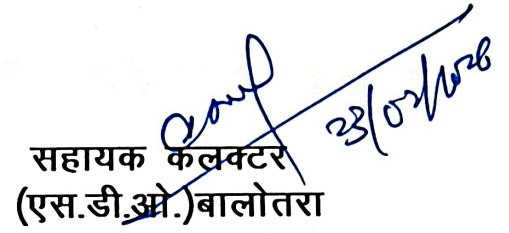 23/02/2026
सहायक कलक्टर
(एस.डी.ओ.)बालोतरा